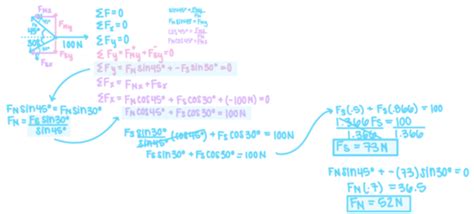 F_Ny
F_Nx
45°
30°
100N
F_Sy
F_Sx
ΣF=0
ΣFx=0
ΣFy=0
ΣFy=F_Ny+F_Sy=0
ΣFy=F_N sin45°+-F_S sin30°=0
ΣFx=F_Nx+F_Sx
ΣFx=F_N cos45°+F_S cos30°+(-100N)=0
F_N cos45°+F_S cos30°=100N
F_N sin45°=F_N sin30°
F_N=F_S sin30°
sin45°
F_S sin30° (cos45°)+F_S cos30°=100N
sin45°
F_S sin30°+F_S cos30°=100N
F_S(.5)+F_S(.866)=100
1.366F_S=100
1.366 1.366
F_S=73N
F_N sin45°+-(73)sin30°=0
F_N(.7)=36.5
F_N=52N